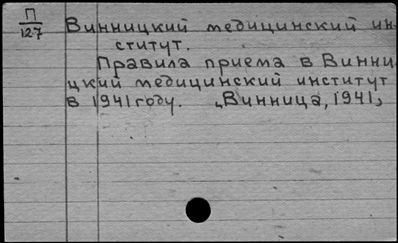 П
127
Винницкий медицинский ин-
ститут.
Правила приема в Винни-
цкий медицинский институт
в 1941 году. „Винница, 1941,